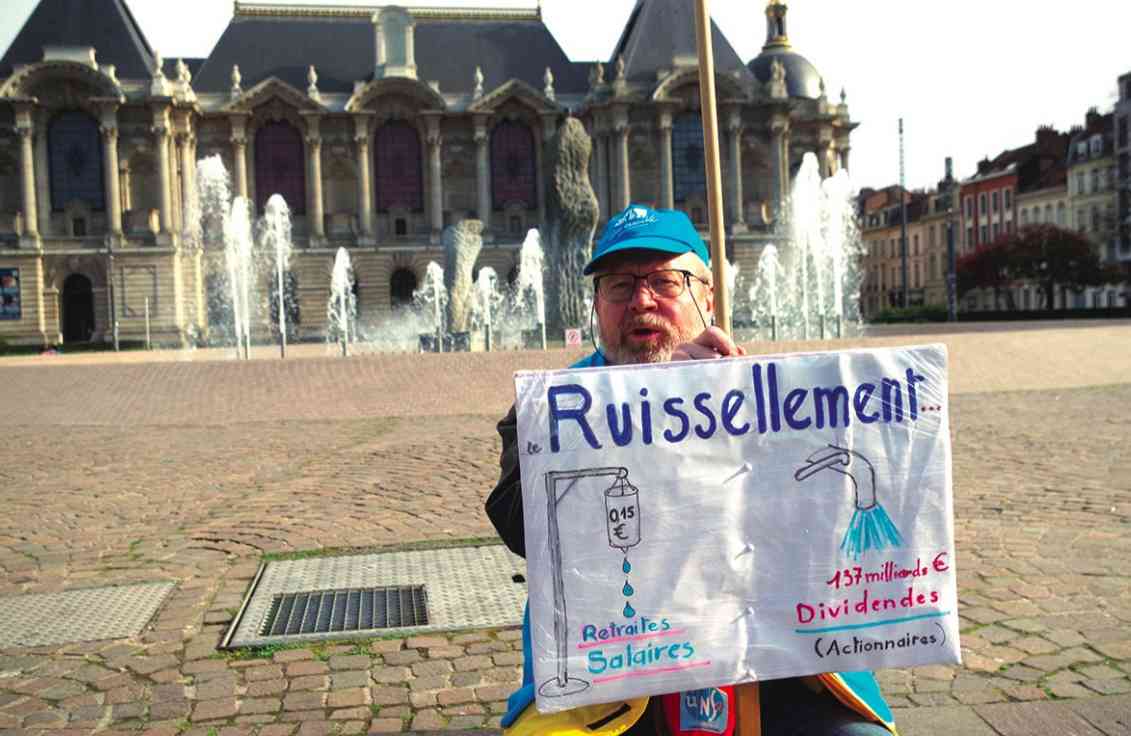 le Ruissellement...
0,15
€
Retraites
Salaires
137 milliards €
Dividendes
(Actionnaires)
UNSA